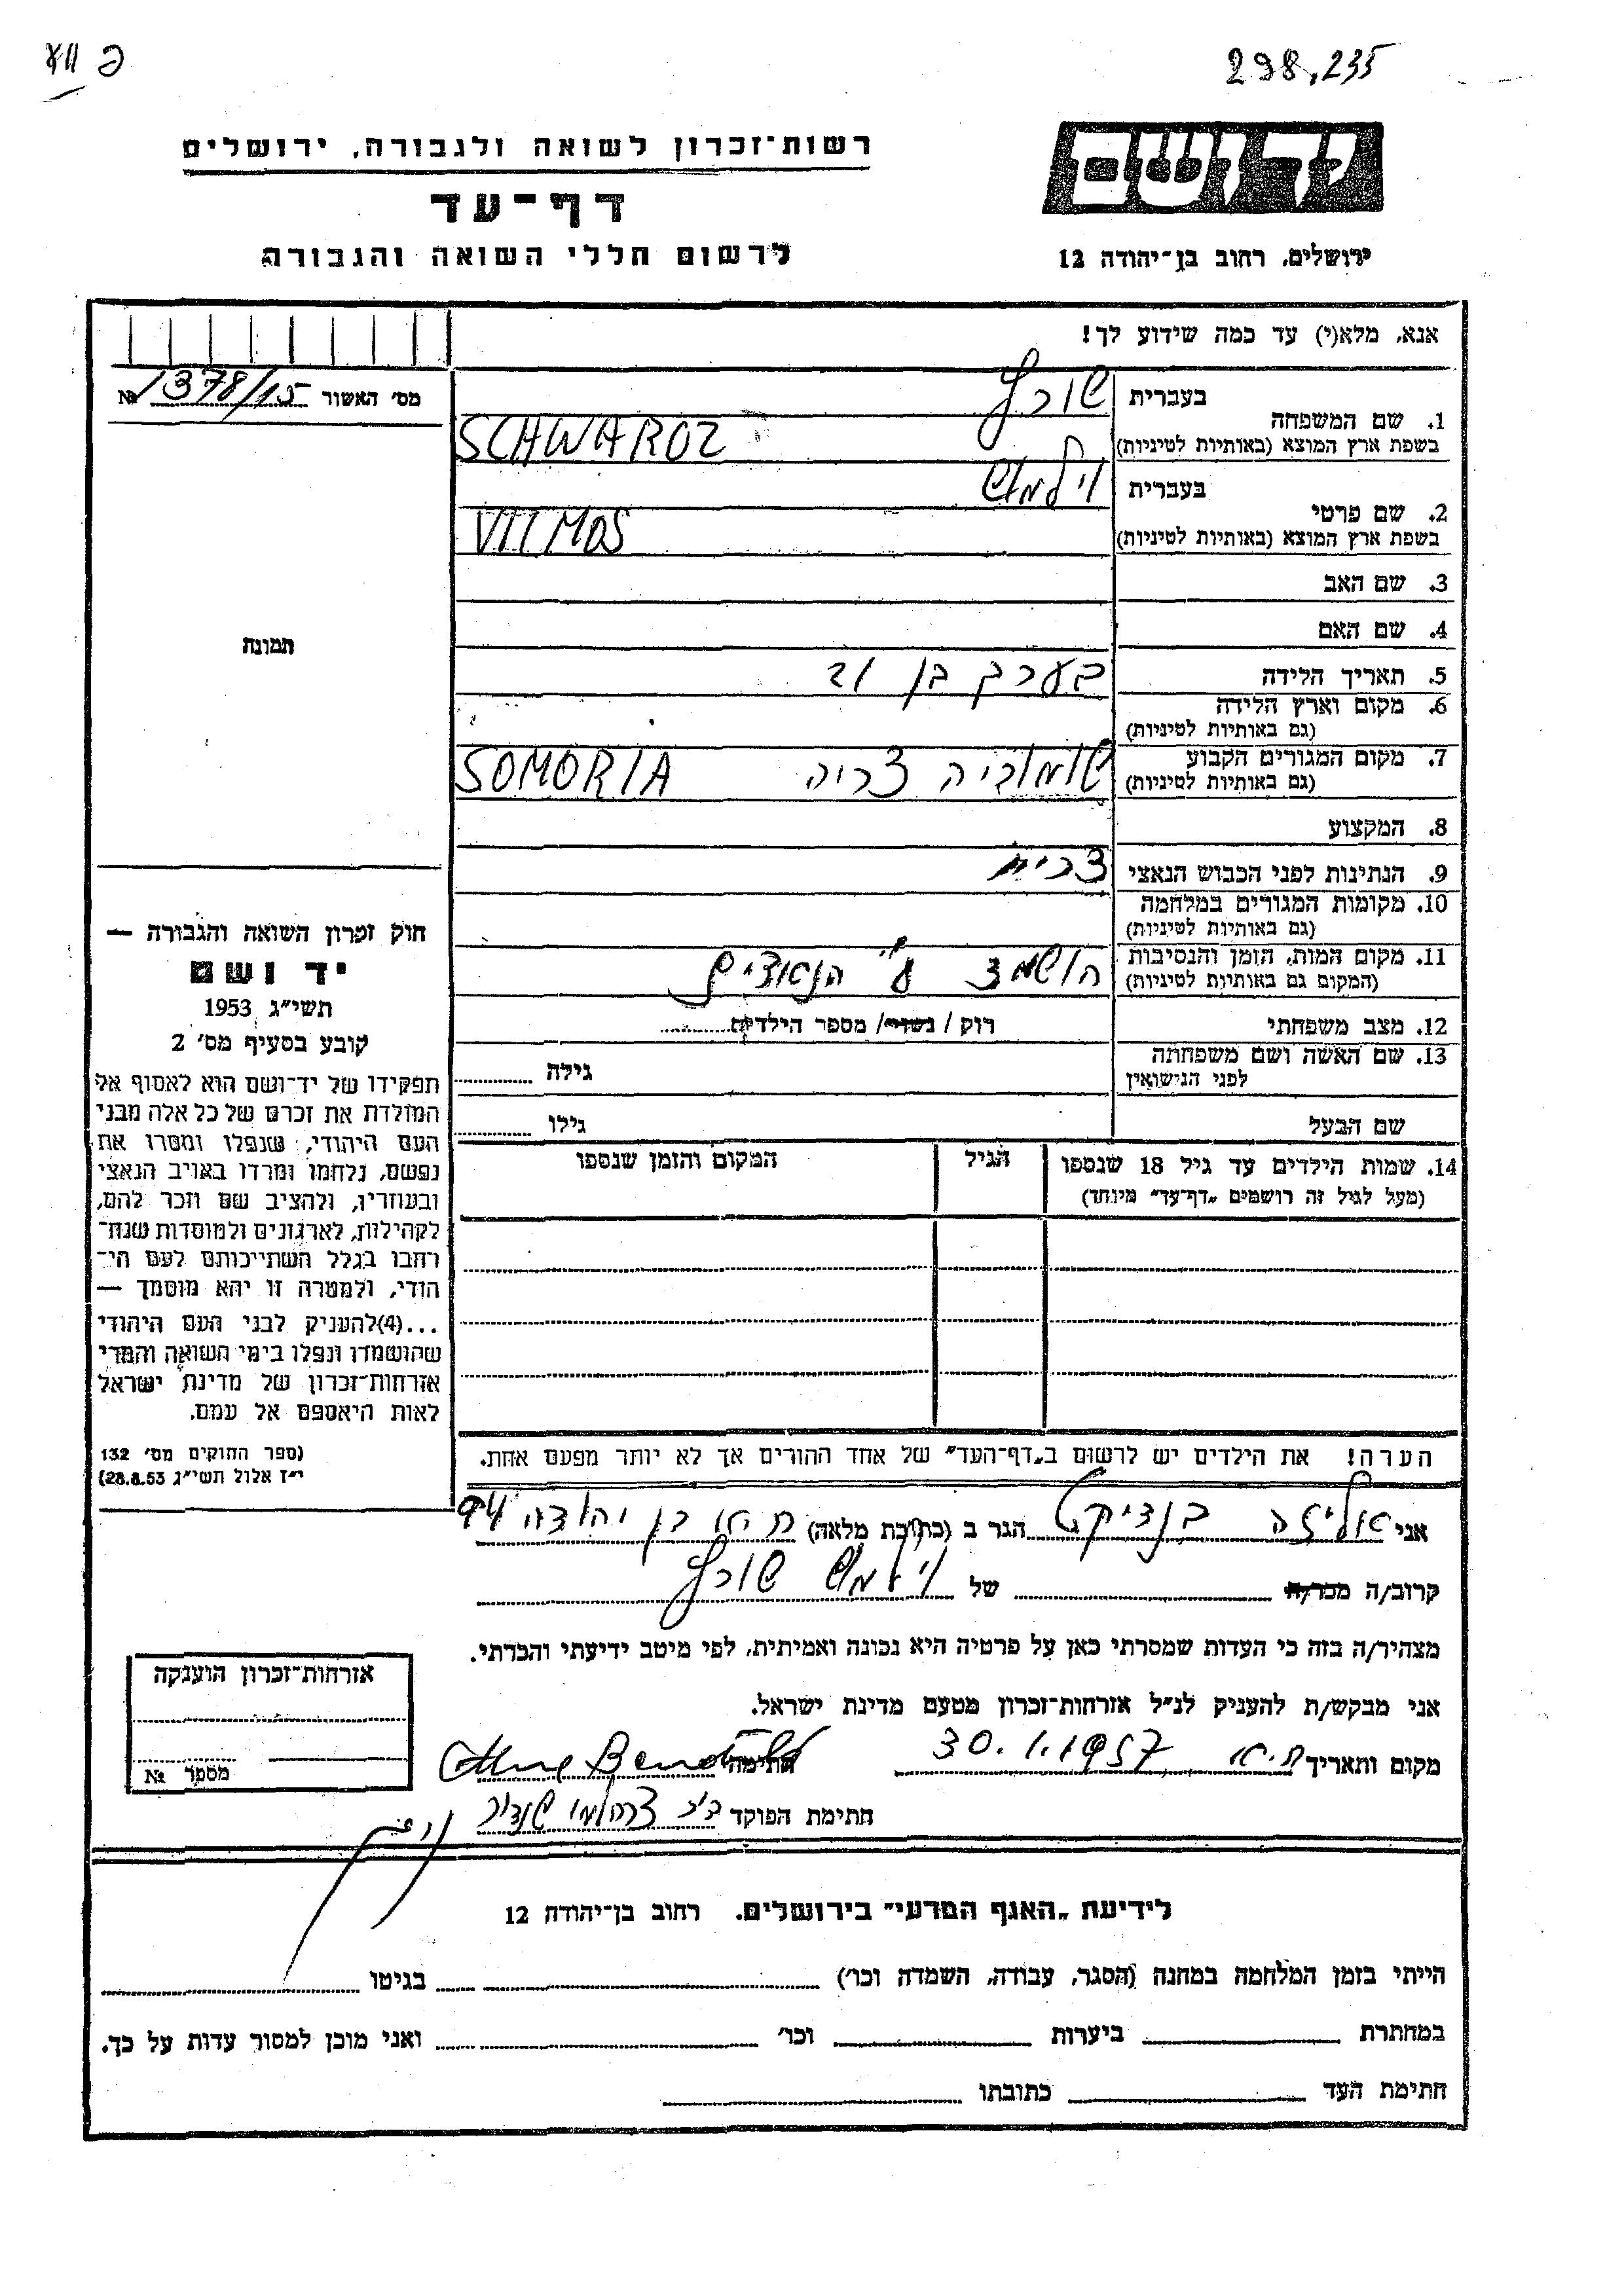 298.235
רשות־זכרון לשואה ולגבורה, ירושלים
דף־עד
לרשום חללי השואה והגבורה
יד ושם
ירושלים, רחוב בן־יהודה 12
אנא, מלא(י) עד כמה שידוע לך!
מס' האשור № 1378/15
1. שם המשפחה
בעברית שורץ
בשפת ארץ המוצא (באותיות לטיניות) SCHWAROZ
2. שם פרטי
בעברית וילמוש
בשפת ארץ המוצא (באותיות לטיניות) VILMOS
3. שם האב
4. שם האם
5. תאריך הלידה בערך בן 21
6. מקום וארץ הלידה
(גם באותיות לטיניות)
7. מקום המגורים הקבוע שומוריה SOMORIA
(גם באותיות לטיניות)
8. המקצוע
9. הנתינות לפני הכבוש הנאצי
10. מקומות המגורים במלחמה
(גם באותיות לטיניות)
11. מקום המות, הזמן והנסיבות הושמד ע"י הנאצים
(המקום גם באותיות לטיניות)
12. מצב משפחתי רוק / נשוי / מספר הילדים
13. שם האשה ושם משפחתה
לפני הנישואין גילה
שם הבעל גילו
14. שמות הילדים עד גיל 18 שנספו הגיל המקום והזמן שנספו
(מעל לגיל זה רושמים "דף־עד" מיוחד)
הערה! את הילדים יש לרשום ב"דף־העד" של אחד ההורים אך לא יותר מפעם אחת.
תמונה
חוק זכרון השואה והגבורה —
יד ושם
תשי"ג 1953
קובע בסעיף מס' 2
תפקידו של יד־ושם הוא לאסוף אל
המולדת את זכרם של כל אלה מבני
העם היהודי, שנפלו ומסרו את
נפשם, נלחמו ומרדו באויב הנאצי
ובעוזריו, ולהציב שם וזכר להם,
לקהילות, לארגונים ולמוסדות שנח־
רחבו בגלל השתייכותם לעם הי־
הודי, ולמטרה זו יהא מוסמך —
...(4)להעניק לבני העם היהודי
שהושמדו ונפלו בימי השואה והמרי
אזרחות־זכרון של מדינת ישראל
לאות היאספם אל עמם.
(ספר החוקים מס' 132
י"ז אלול תשי"ג 28.8.53)
אני אליזה בנדיקט הגר ב (כתובת מלאה) ת"א בן יהודה 94
קרוב/ה מכר/ה של וילמוש שורץ
מצהיר/ה בזה כי העדות שמסרתי כאן על פרטיה היא נכונה ואמיתית, לפי מיטב ידיעתי והכרתי.
אני מבקש/ת להעניק לנ"ל אזרחות־זכרון מטעם מדינת ישראל.
מקום ותאריך ת"א 30.1.1957 חתימה
חתימת הפוקד
אזרחות־זכרון הוענקה
מספר №
לידיעת "האגף המדעי" בירושלים, רחוב בן־יהודה 12
הייתי בזמן המלחמה במחנה (הסגר, עבודה, השמדה וכו') בגיטו
במחתרת ביערות וכו' ואני מוכן למסור עדות על כך.
חתימת העד כתובתו